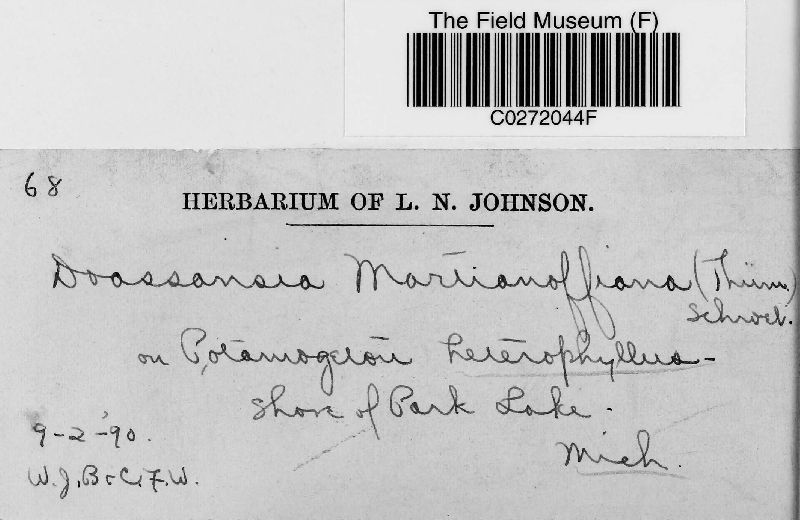 The Field Museum (F)
C0272044F
68
HERBARIUM OF L. N. JOHNSON.
Doassansia Martianoffiana (Thüm.)
Schroet.
on Potamogeton heterophyllus -
Shore of Park Lake.
Mich.
9-2-'90.
W.J.B & C.F.W.